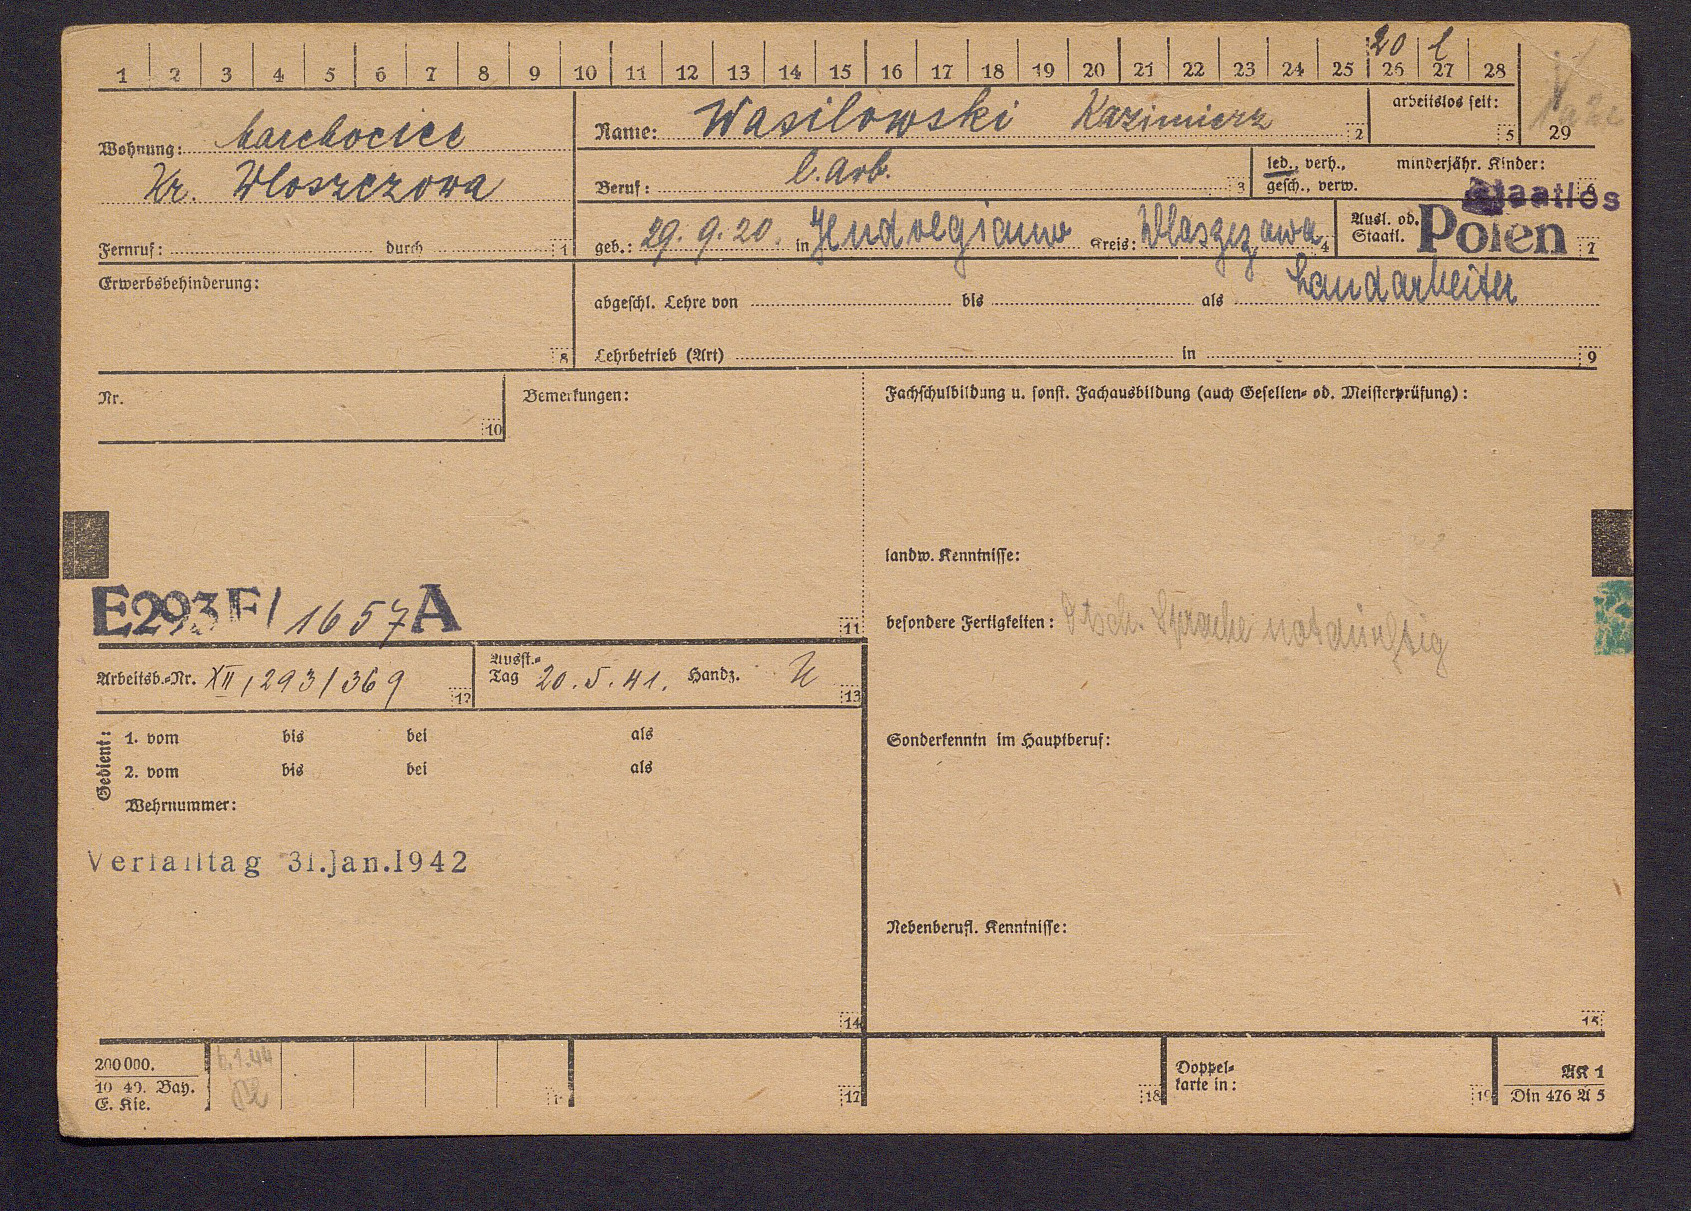 20 l
1 2 3 4 5 6 7 8 9 10 11 12 13 14 15 16 17 18 19 20 21 22 23 24 25 26 27 28
29
Wohnung: barchocice
Kr. Wloszczowa
Fernruf: durch 1
Name: Wasilowski Kazimierz 2
arbeitslos seit: 5
Beruf: l. Arb. 3
led., verh., gesch., verw.
minderjähr. Kinder: 6
Staatlos
geb.: 29. 9. 20. in Kreis: 4
Ausl. od. Staatl. Polen 7
Erwerbsbehinderung: 8
abgeschl. Lehre von bis als Landarbeiter
Lehrbetrieb (Art) in 9
Nr. 10
Bemerkungen:
Fachschulbildung u. sonst. Fachausbildung (auch Gesellen- od. Meisterprüfung):
landw. Kenntnisse:
E293F/ 1657 A
11
besondere Fertigkeiten: Dtsch. Sprache notdürftig
Arbeitsb.-Nr. XII/293/369 12
Ausst.-Tag 20. 5. 41. Handz. 13
Gedient:
1. vom bis bei als
2. vom bis bei als
Wehrnummer:
Sonderkenntn im Hauptberuf:
Verfalltag 31.Jan.1942
Nebenberufl. Kenntnisse:
14
15
200000.
10 40. Bay.
E. Kie.
6.1.44
17
18
Doppel-
karte in:
19
AK 1
Din 476 A 5